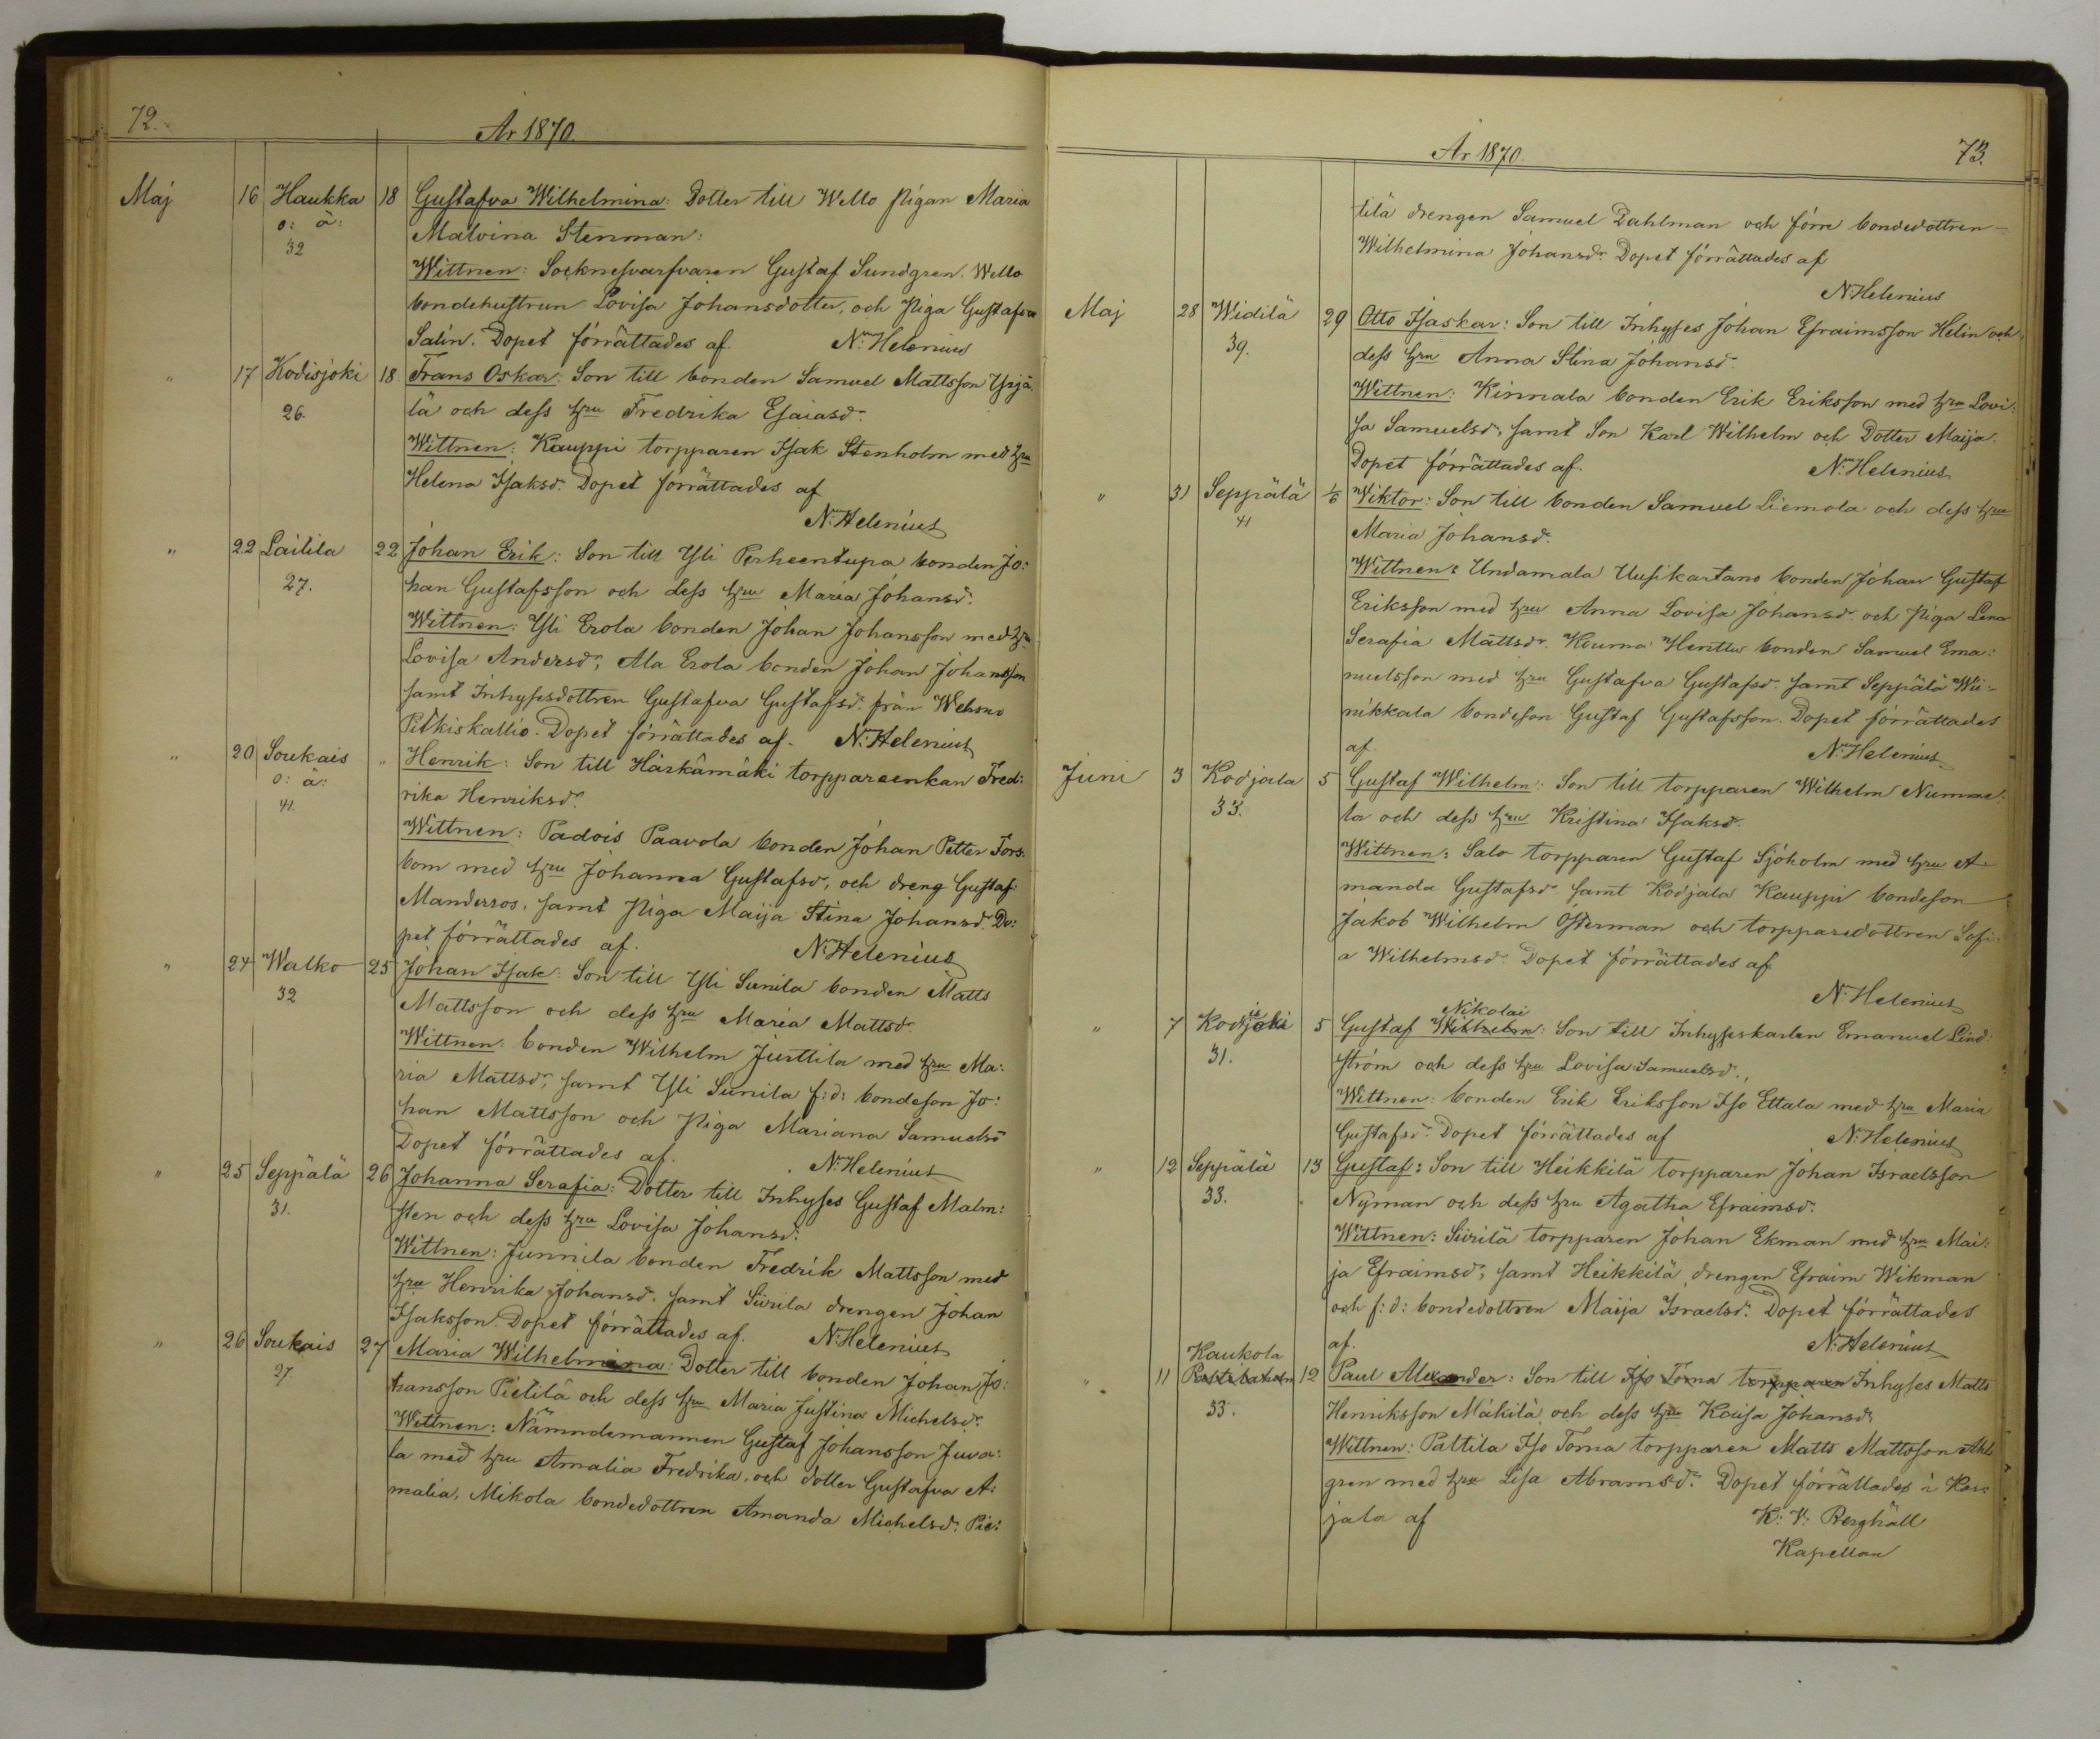 72.
År 1870.
Maj 16 Haukka 18 Gustafva Wilhelmina: Dotter till Wello Pigan Maria
o: ä: Malvina Stenman:
32
Wittnen: Socknesvarfvaren Gustaf Sundgren. Wello
bondehustrun Lovisa Johansdotter, och Piga Gustafva
Salin. Dopet förrättades af. N: Helenius
" 17 Kodisjoki 18 Frans Oskar: Son till bonden Samuel Mattsson Yrjä:
26. lä och dess hru Fredrika Esaiasdr.
Wittnen: Kauppi torpparen Isak Stenholm med hru
Helena Isaksdr. Dopet förrättades af
N: Helenius
" 22 Laitila 22 Johan Erik: Son till Yli Perheentupa bonden Jo:
27. han Gustafsson och dess hru Maria Johansdr.
Wittnen: Yli Erola bonden Johan Johansson med hru
Lovisa Andersdr, Ala Erola bonden Johan Johansson
samt Inhysesdottren Gustafva Gustafsdr. från Wehmo
Pitkiskallio. Dopet förrättades af. N: Helenius
" 20 Soukais " Henrik: Son till Härkämäki torppareenkan Fred:
o: ä: rika Henriksdr.
41.
Wittnen: Padois Paavola bonden Johan Petter Fors:
bom med hru Johanna Gustafsdr, och dreng Gustaf
Manderros, samt Piga Maija Stina Johansdr. Do:
pet förrättades af. N: Helenius
" 24 Walko 25 Johan Isak: Son till Yli Sunila bonden Matts
32 Mattsson och dess hru Maria Mattsdr
Wittnen: bonden Wilhelm Junttila med hru Ma:
ria Mattsdr, samt Yli Sunila f:d: bondeson Jo:
han Mattsson och Piga Mariana Samuelsdr
Dopet förrättades af. N: Helenius
" 25 Seppälä 26 Johanna Serafia: Dotter till Inhyses Gustaf Malm:
31. sten och dess hru Lovisa Johansdr.
Wittnen: Junnila bonden Fredrik Mattsson med
hru Henrika Johansdr. samt Siirilä drengen Johan
Isaksson. Dopet förrättades af. N: Helenius
" 26 Soukais 27 Maria Wilhelmina: Dotter till bonden Johan Jo:
27. hansson Pietilä och dess hru Maria Justina Michelsdr.
Wittnen: Nämndemannen Gustaf Johansson Juva:
la med hru Amalia Fredrika, och dotter Gustafva A:
malia, Mikola bondedottren Amanda Michelsdr. Pie:
År 1870. 73.
tilä drengen Samuel Dahlman och förre bondedottren
Wilhelmina Johansdr. Dopet förrättades af
N: Helenius
Maj 28 Widilä 29 Otto Isaskar: Son till Inhyses Johan Efraimsson Helin och
39. dess hru Anna Stina Johansdr.
Wittnen: Kinnala bonden Erik Eriksson med hru Lovi:
sa Samuelsdr, samt Son Karl Wilhelm och Dotter Maija.
Dopet förrättades af. N: Helenius
" 31 Seppälä 1/6 Wiktor: Son till bonden Samuel Liemola och dess hru
41 Maria Johansdr.
Wittnen: Undamala Uusikartano bonden Johan Gustaf
Eriksson med hru Anna Lovisa Johansdr. och Piga Lena
Serafia Mattsdr. Kouma Henttu bonden Samuel Ema:
nuelsson med hru Gustafva Gustafsdr. samt Seppälä Wii:
nikkala bondeson Gustaf Gustafsson. Dopet förrättades
af. N: Helenius
Juni 3 Kodjala 5 Gustaf Wilhelm: Son till torpparen Wilhelm Numme:
33. la och dess hru Kristina Isaksdr.
Wittnen: Salo torpparen Gustaf Sjöholm med hru A:
manda Gustafsdr. samt Kodjala Kauppi bondeson
Jakob Wilhelm Österman och torpparedottren Sofi:
a Wilhelmsdr. Dopet förrättades af
N: Helenius
Nikolai
" 7 Kodisjoki 5 Gustaf Wilhelm: Son till Inhyseskarlen Emanuel Lind:
31. ström och dess hru Lovisa Samuelsdr.,
Wittnen: bonden Erik Eriksson Iso Ettala med hru Maria
Gustafsdr. Dopet förrättades af N: Helenius
" 12 Seppälä 13 Gustaf: Son till Heikkilä torpparen Johan Israelsson
33. Nyman och dess hru Agatha Efraimsdr.
Wittnen: Siirilä torpparen Johan Ekman med hru Mai:
ja Efraimsdr, samt Heikkilä drengen Efraim Wikman
och f:d: bondedottren Maija Israelsdr. Dopet förrättades
af. N: Helenius
Kaukola
" 11 12 Paul Alexander: Son till Iso Torna torpparen Inhyses Matts
33. Henriksson Mäkilä och dess hru Lovisa Johansdr,
Wittnen: Pattila Iso Torna torpparen Matts Mattsson Ahl:
gren med hru Lisa Abramsdr. Dopet förrättades i Kar:
jala af K: V: Berghäll
Kapellan